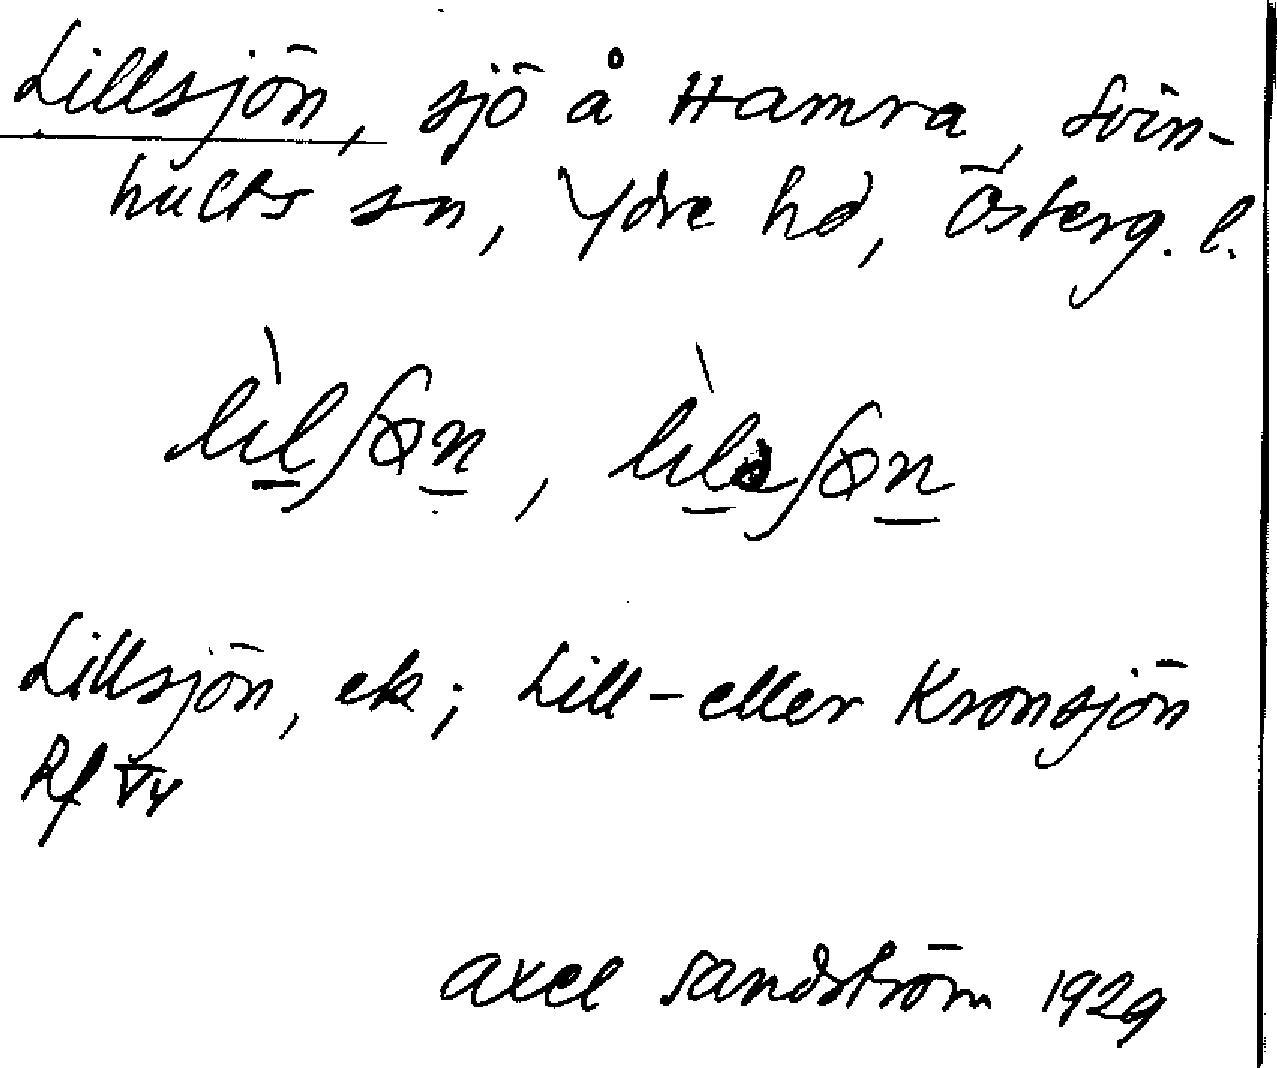 Lillsjön, sjö å Hamra, Svin-
hults sn, Ydre hd, Österg. l.
lìlʃøn, lìlaʃøn
Lillsjön, ek; Lill- eller Kronsjön
Rf
Axel Sandström 1929